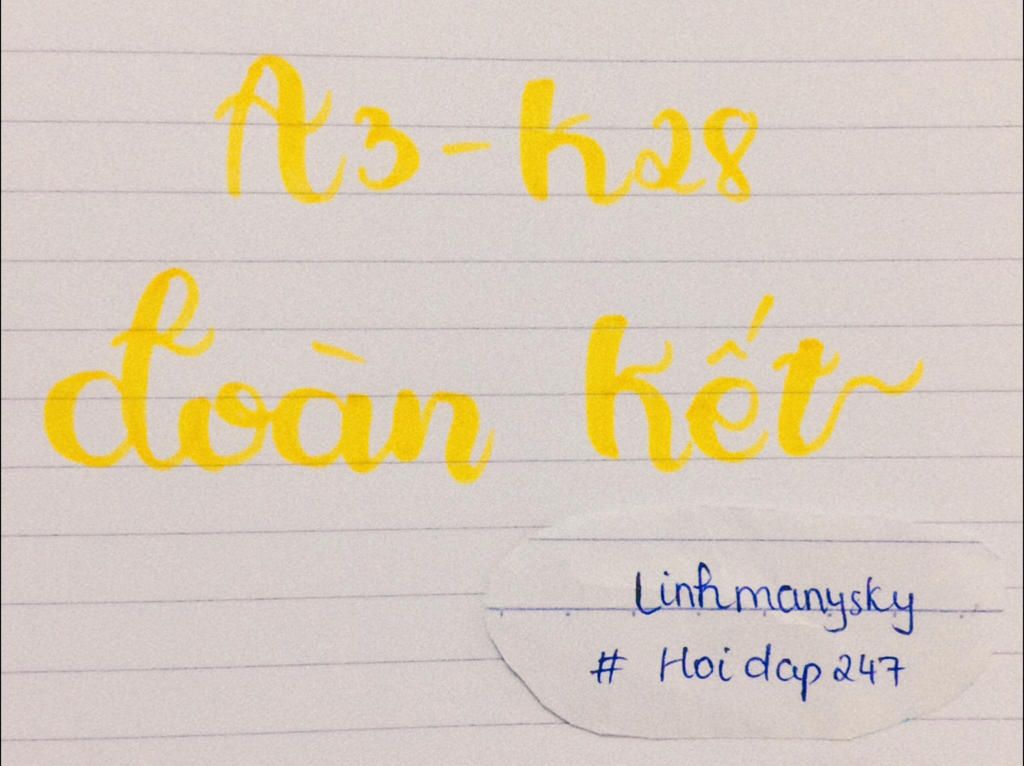 A3-K28
đoàn kết~
Linhmanysky
# Hoidap247